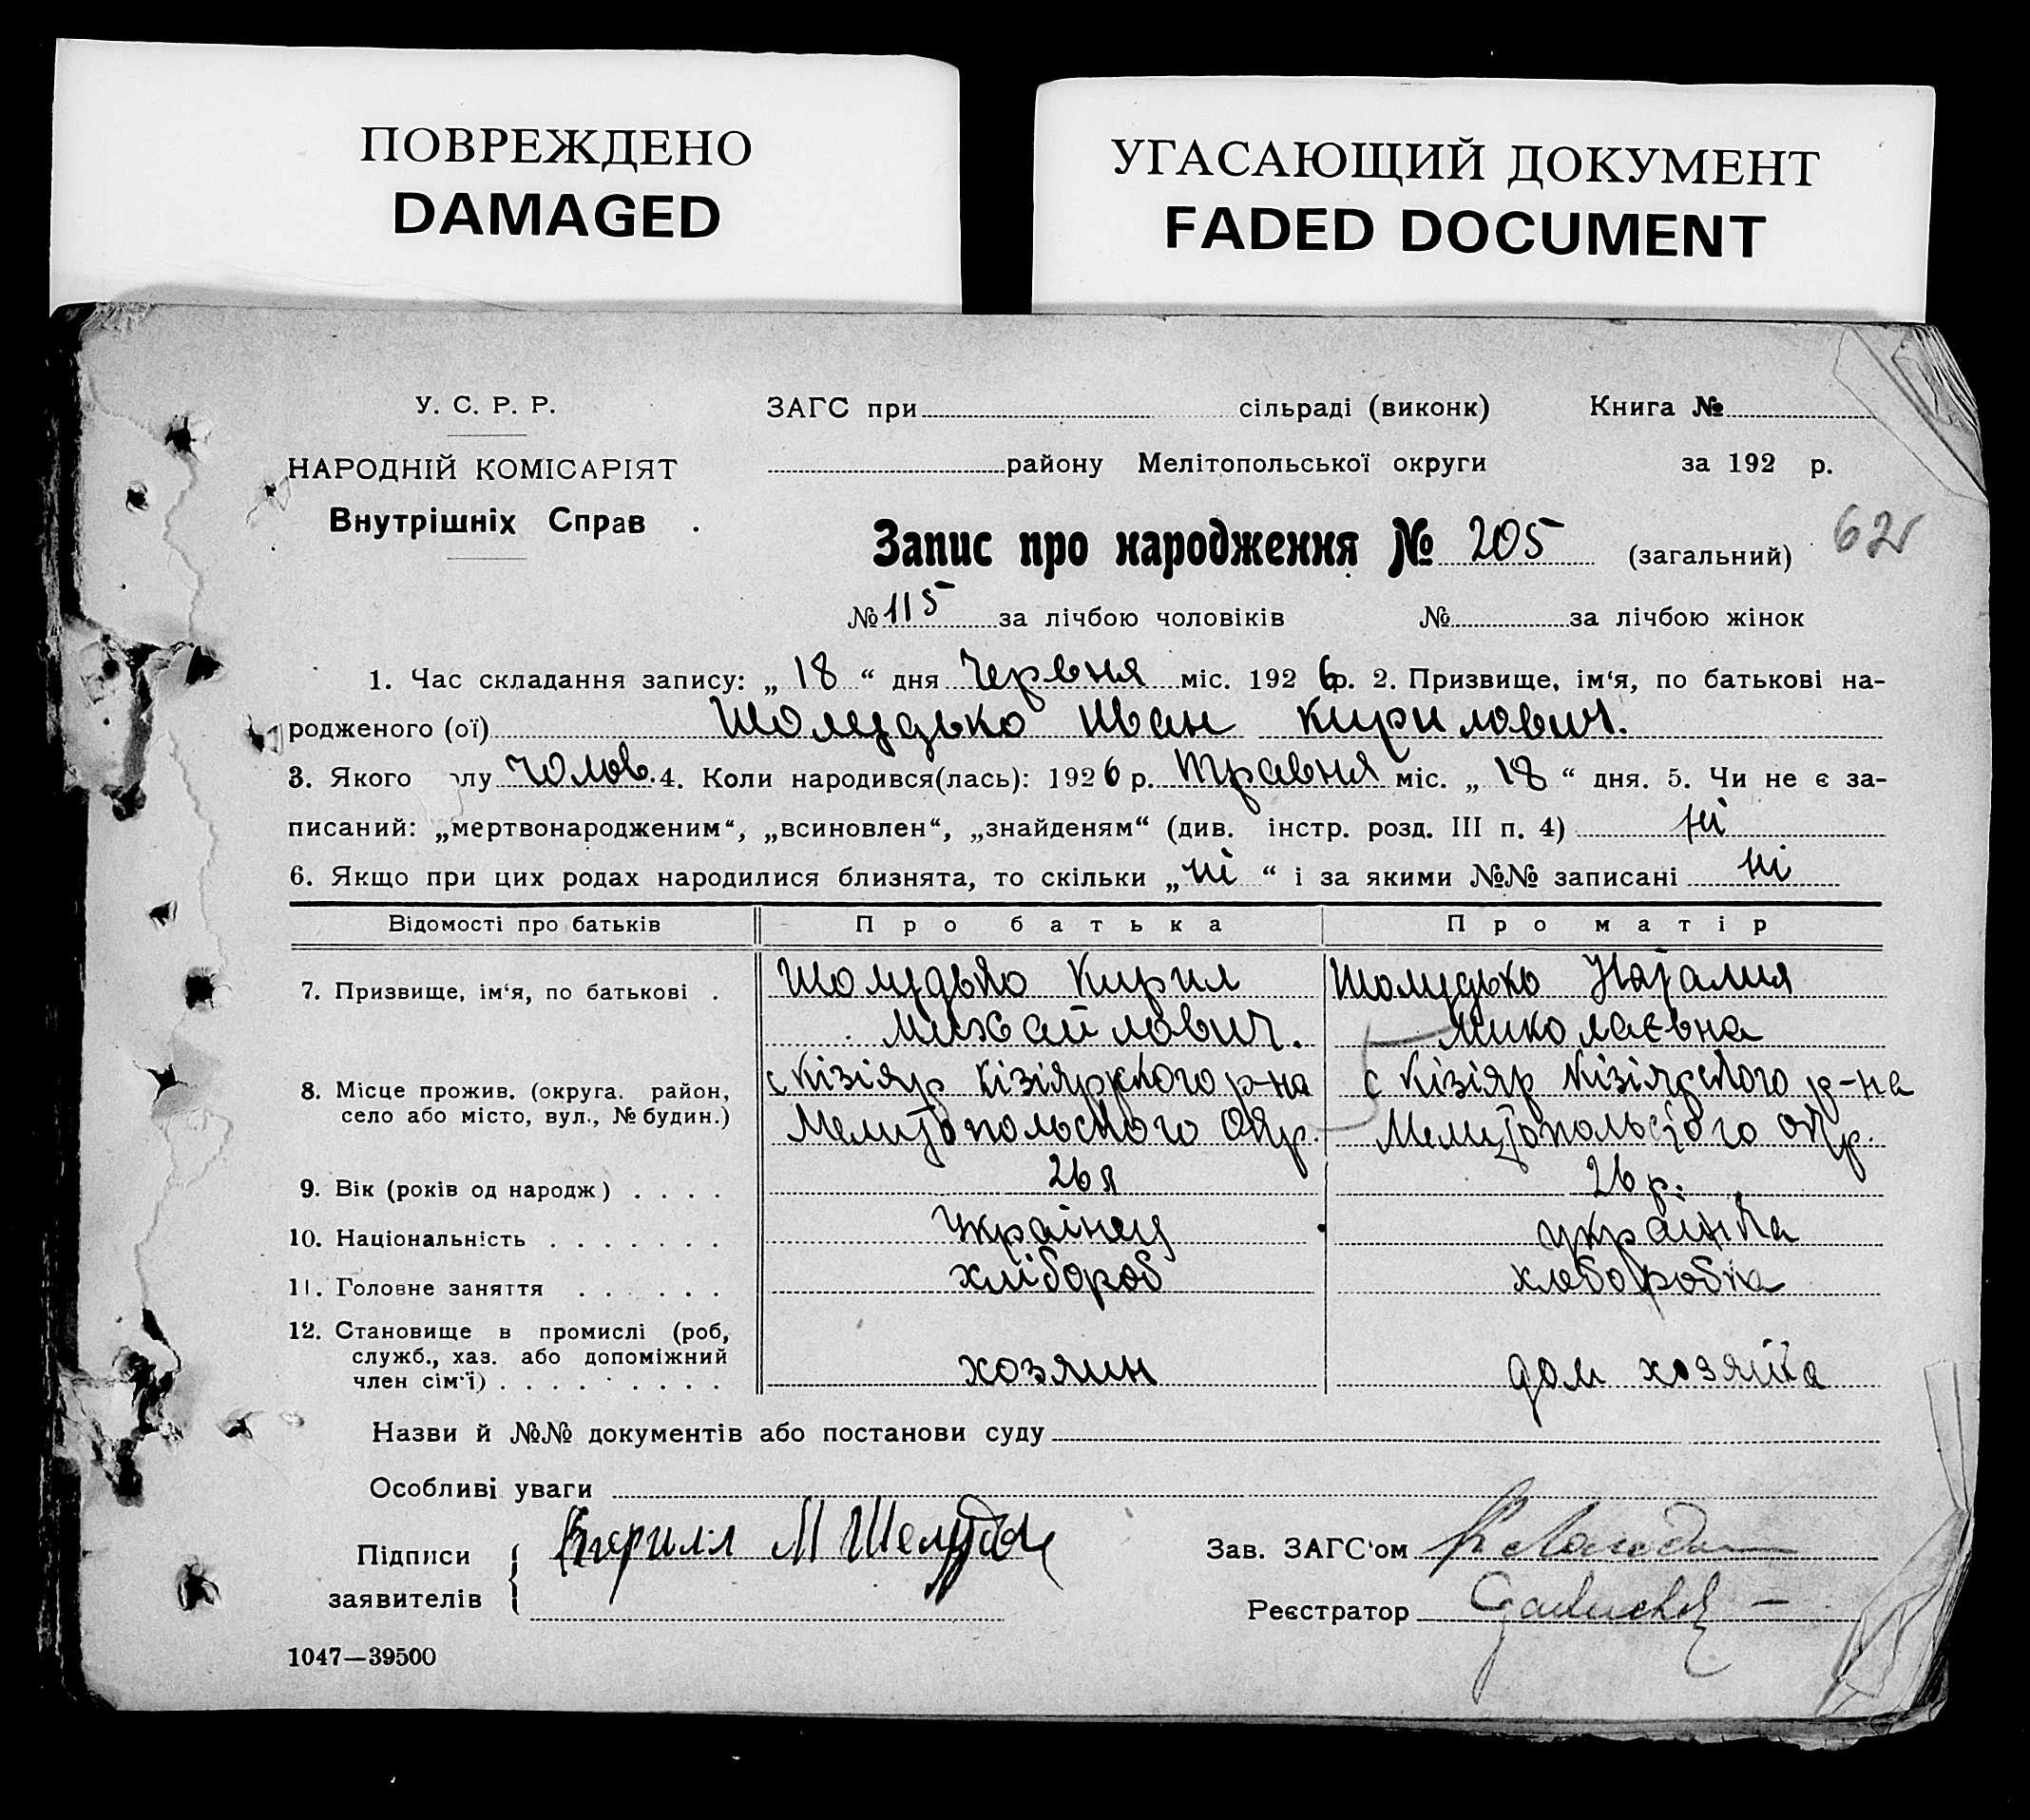 ПОВРЕЖДЕНО
DAMAGED
УГАСАЮЩИЙ ДОКУМЕНТ
FADED DOCUMENT
У. С. Р. Р.
НАРОДНІЙ КОМІСАРІЯТ
Внутрішніх Справ
ЗАГС при сільраді (виконк) Книга №
району Мелітопольської округи за 192 р.
Запис про народження № 205 (загальний) 62
№ 115 за лічбою чоловіків № за лічбою жінок
1. Час складання запису: „ 18 “ дня Червня міс. 192 6 р. 2. Призвище, ім‘я, по батькові на-
родженого (ої) Шолудько Иван Кирилович.
3. Якого полу чолов. 4. Коли народився(лась): 192 6 р. Травня міс. „ 18 “ дня. 5. Чи не є за-
писаний: „мертвонародженим“, „всиновлен“, „знайденям“ (див. інстр. розд. III п. 4) ні
6. Якщо при цих родах народилися близнята, то скільки „ ні “ і за якими №№ записані ні
Відомості про батьків Про батька Про матір
7. Призвище, ім‘я, по батькові . Шолудько Кирил Шолудько Наталия
Михайлович. Миколаєвна
8. Місце прожив. (округа. район, с Кізіяр Кізіярского р-на с Кізіяр Кізіярского р-на
село або місто, вул., № будин.) Мелитопольского Окр. Мелитопольского Окр.
9. Вік (років од народж) . . . . 26 26 р.
10. Національність . . . . . . . Українец українка
11. Головне заняття . . . . . . хлібороб хлеборобка
12. Становище в промислі (роб,
служб., хаз. або допоміжний
член сім‘ї) . . . . . . . . . хозяин дом хозяйка
Назви й №№ документів або постанови суду
Особливі уваги
Підписи Кирилл М Шелудько Зав. ЗАГС‘ом
заявителів Реєстратор
1047—39500